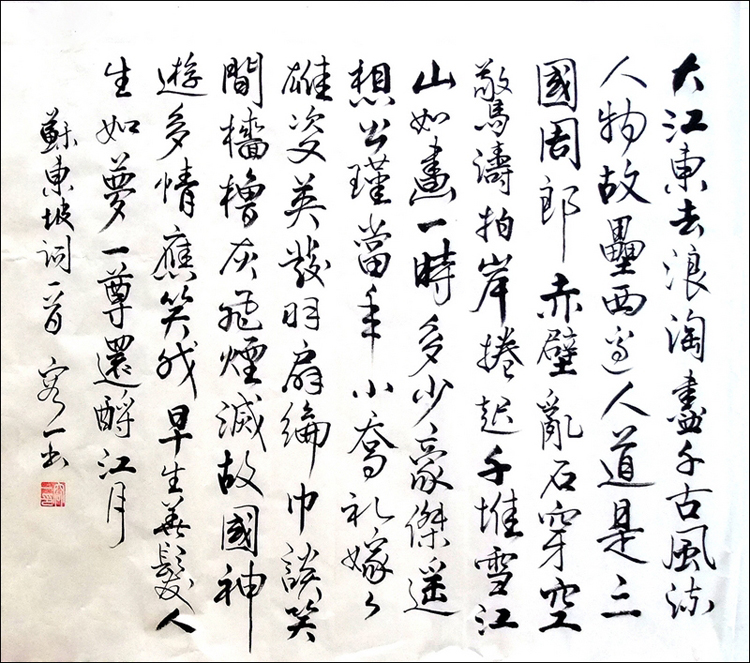 大江東去浪淘盡千古風流
人物故壘西邊人道是三
國周郎赤壁亂石穿空
驚濤拍岸捲起千堆雪江
山如畫一時多少豪傑遥
想公瑾當年小喬初嫁了
雄姿英發羽扇綸巾談笑
間檣櫓灰飛煙滅故國神
遊多情應笑我早生華髮人
生如夢一尊還酹江月
蘇東坡詞一首 一书